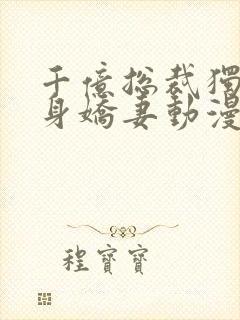 千億總裁獨
身嬌妻動漫
程寶寶